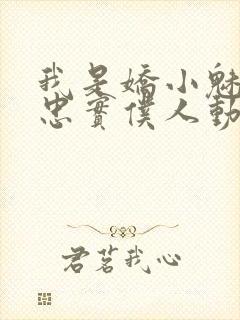 我是嬌小魅
忠實僕人動
君茗我心